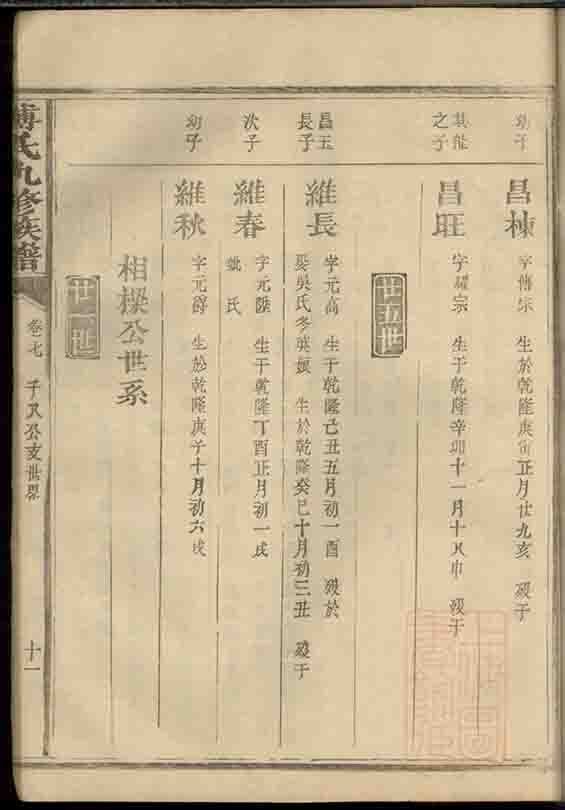 幼子
昌棟
字傳宗 生於乾隆庚寅正月廿九亥 歿于
其能
之子
昌旺
字耀宗 生于乾隆辛卯十一月十八申 歿于
廿五世
昌玉
長子
維長
字元高 生于乾隆己丑五月初一酉 歿於
娶吳氏冬英 生於乾隆癸巳十月初三丑 歿于
次子
維春
字元陞 生于乾隆丁酉正月初一戌
氏
幼子
維秋
字元爵 生於乾隆庚子十月初六戌
相樑公世系
廿一世
傅氏九修族譜
卷七
千八公支世系
十一